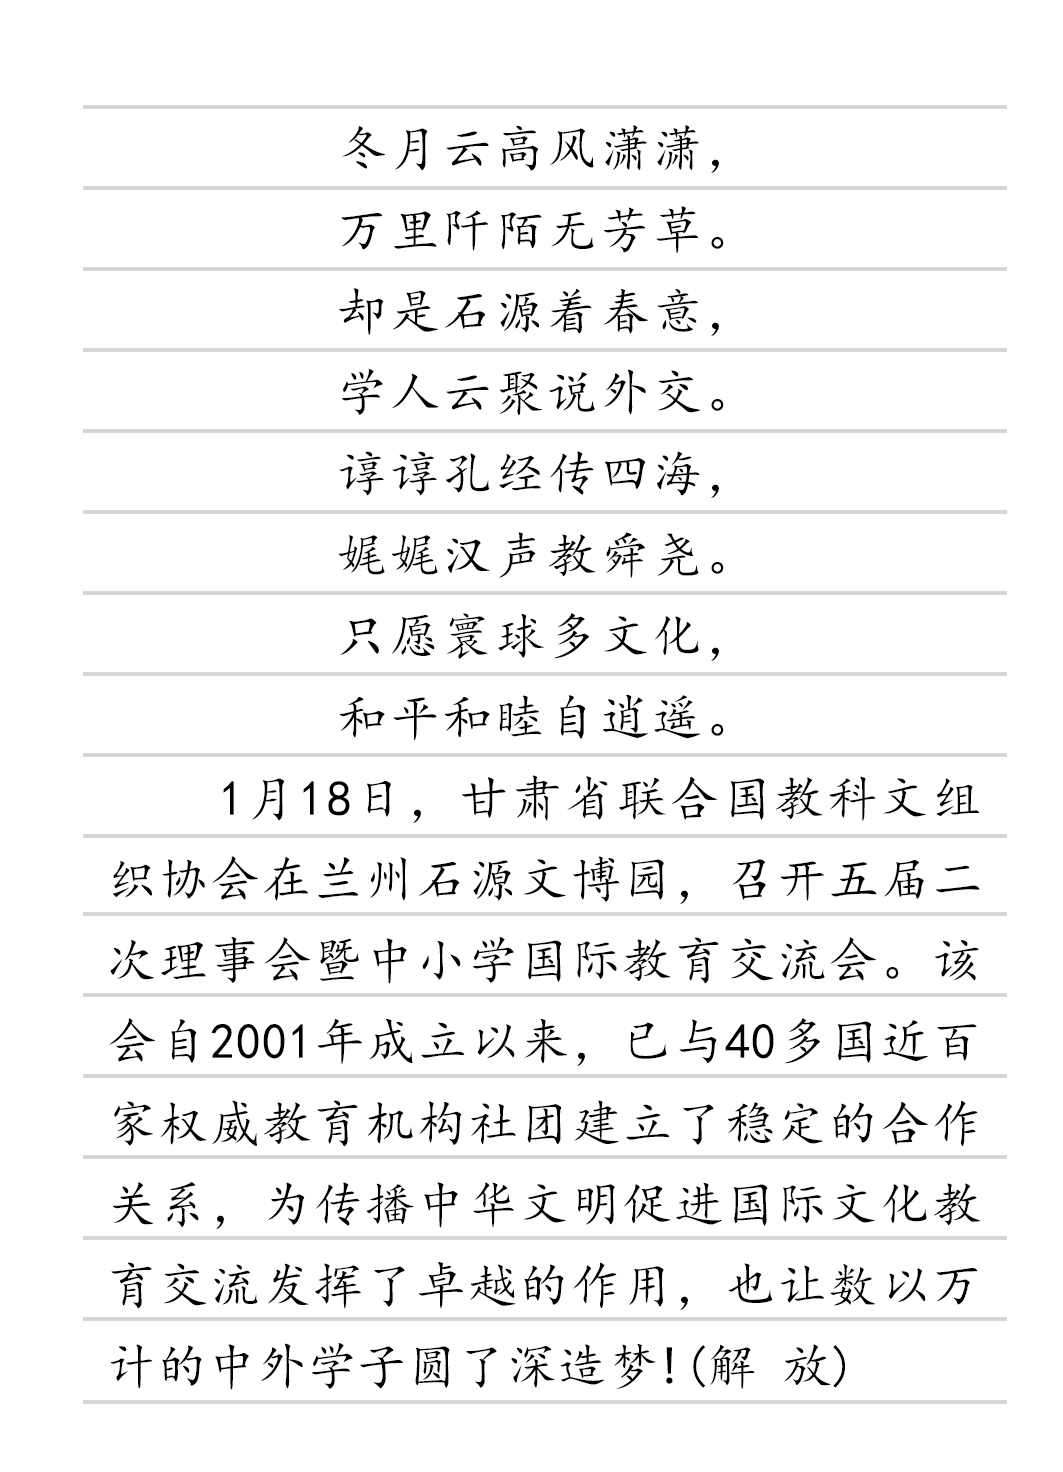 冬月云高风潇潇，
万里阡陌无芳草。
却是石源着春意，
学人云聚说外交。
谆谆孔经传四海，
娓娓汉声教舜尧。
只愿寰球多文化，
和平和睦自逍遥。
1月18日，甘肃省联合国教科文组
织协会在兰州石源文博园，召开五届二
次理事会暨中小学国际教育交流会。该
会自2001年成立以来，已与40多国近百
家权威教育机构社团建立了稳定的合作
关系，为传播中华文明促进国际文化教
育交流发挥了卓越的作用，也让数以万
计的中外学子圆了深造梦!(解 放)